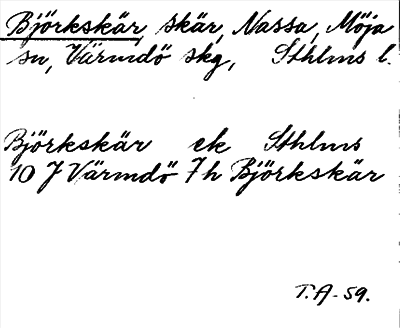 Björkskär, skär, Nassa, Möja
sn, Värmdö skg, Sthlms l.
Björkskär ek Sthlms
10 J Värmdö 7h Björkskär
T.A-59.